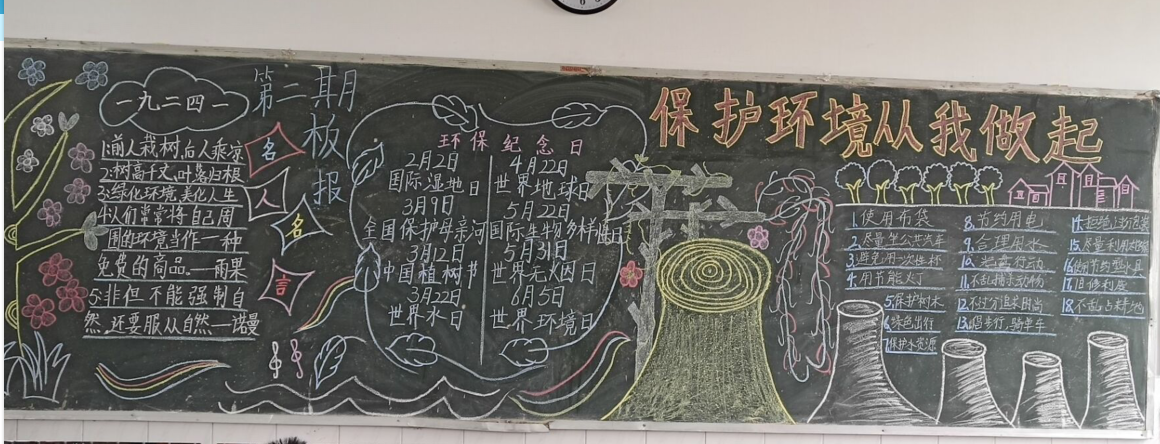 一九二四一
第二期月
板
报
1:前人栽树,后人乘凉
2:树高千丈,叶落归根
3:绿化环境,美化人生
4:人们常常将自己周
围的环境当作一种
免费的商品。—雨果
5:非但不能强制自
然,还要服从自然—诺曼
名
人
名
言
环保纪念日
2月2日
国际湿地日
3月9日
全国保护母亲河
3月12日
中国植树节
3月22日
世界水日
4月22日
世界地球日
5月22日
国际生物多样性日
5月31日
世界无烟日
6月5日
世界环境日
保护环境从我做起
1.使用布袋
2.尽量坐公共汽车
3.避免用一次性杯
4.用节能灯
5.保护树木
6.绿色出行
7.保护水资源
8.节约用电
9.合理用水
11.不乱捕杀动物
12.不过分追求时尚
13.多步行,骑单车
15.尽量利用
18.不乱占耕地